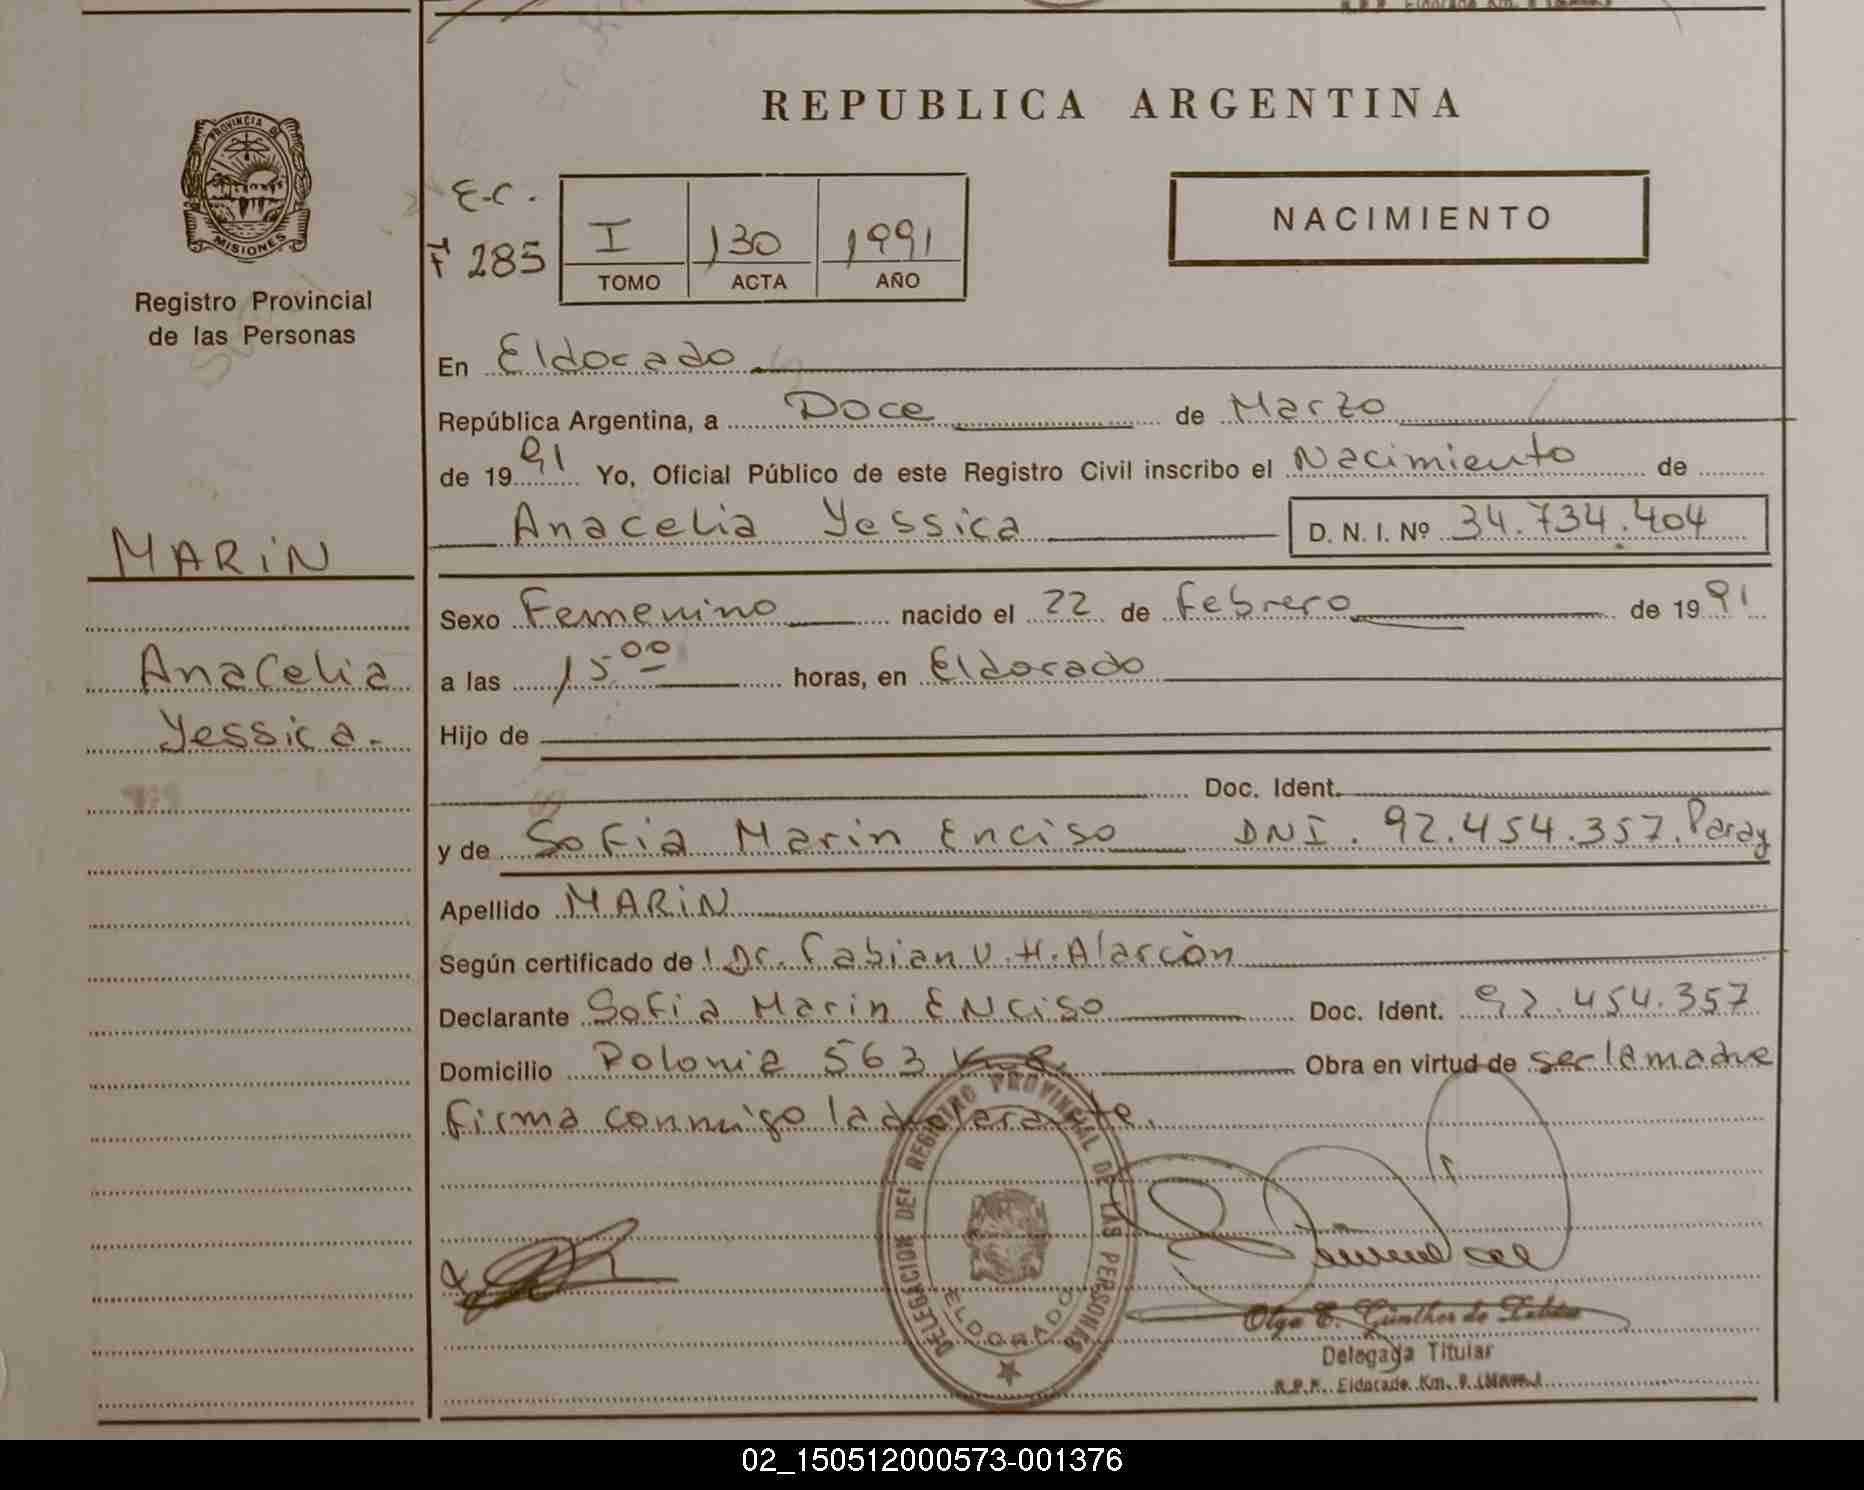 PROVINCIA DE
MISIONES
Registro Provincial
de las Personas
MARiN
Anacelia
Yessica.
REPUBLICA ARGENTINA
E.C.
F 285
I 130 1991
TOMO ACTA AÑO
NACIMIENTO
En Eldorado
República Argentina, a Doce de Marzo
de 1991 Yo, Oficial Público de este Registro Civil inscribo el Nacimiento de
Anacelia Yessica D. N. I. Nº 34.734.404
Sexo Femenino nacido el 22 de Febrero de 1991
a las 15 00 horas, en Eldorado
Hijo de
Doc. Ident.
y de Sofia Marin Enciso DNI. 92.454.357. Paray
Apellido MARiN
Según certificado de Dr. Fabian V. H. Alarcòn
Declarante Sofia Marin ENciso Doc. Ident. 92.454.357
Domicilio Polonia 563 Km 8. Obra en virtud de ser la madre
firma conmigo la declarante.
DELEGACION DEL REGISTRO PROVINCIAL DE LAS PERSONAS
ELDORADO
Olga E. Günther de
Delegada Titular
R.P.P. Eldorado Km. 9 (Mnes.)
02_150512000573-001376